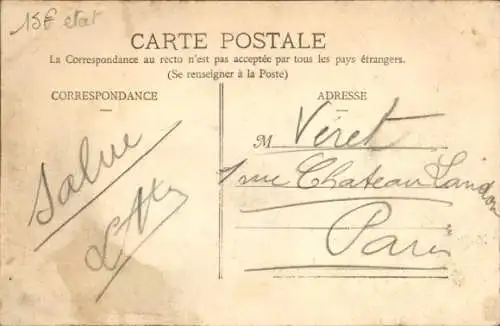 15€ etat
CARTE POSTALE
La Correspondance au recto n'est pas acceptée par tous les pays étrangers.
(Se renseigner à la Poste)
CORRESPONDANCE
Salue
ADRESSE
M Véret
1 rue Chateau Landon
Paris